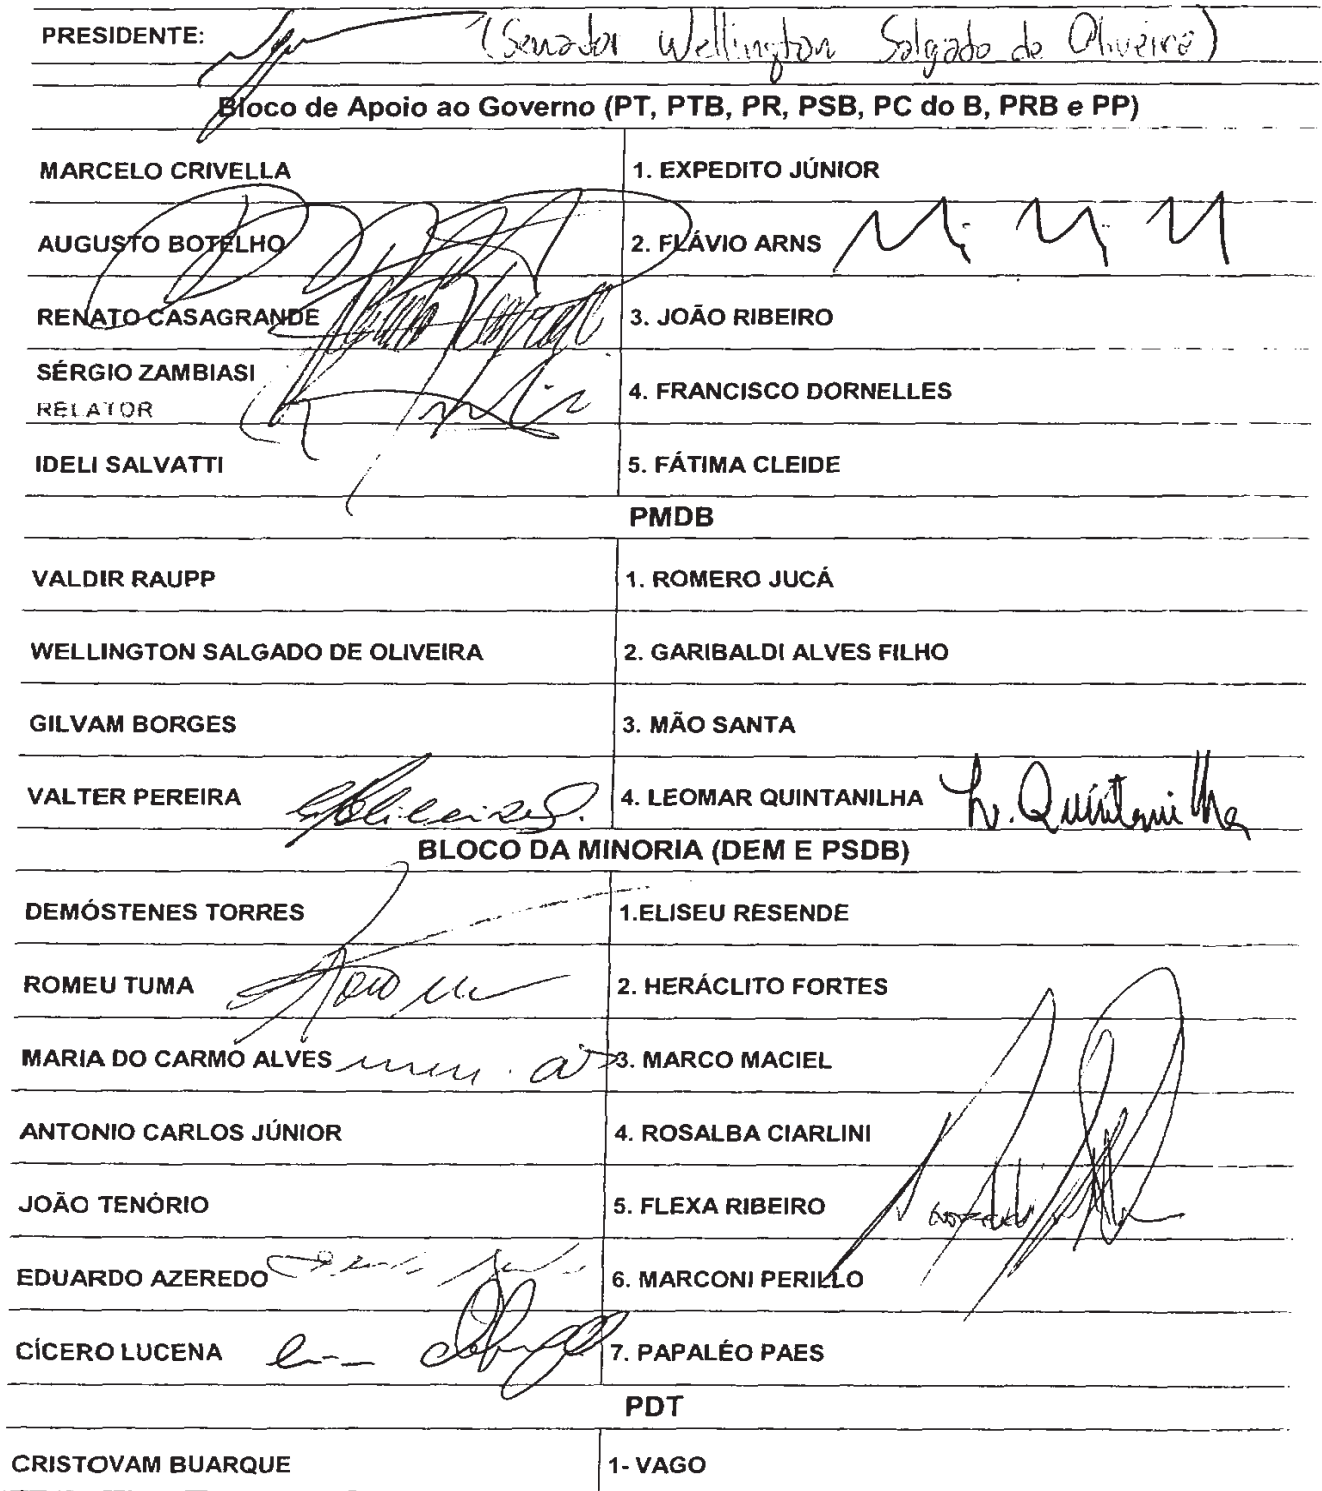 PRESIDENTE: (Senador Wellington Salgado de Oliveira)
Bloco de Apoio ao Governo (PT, PTB, PR, PSB, PC do B, PRB e PP)
MARCELO CRIVELLA 1. EXPEDITO JÚNIOR
AUGUSTO BOTELHO 2. FLÁVIO ARNS
RENATO CASAGRANDE 3. JOÃO RIBEIRO
SÉRGIO ZAMBIASI
RELATOR 4. FRANCISCO DORNELLES
IDELI SALVATTI 5. FÁTIMA CLEIDE
PMDB
VALDIR RAUPP 1. ROMERO JUCÁ
WELLINGTON SALGADO DE OLIVEIRA 2. GARIBALDI ALVES FILHO
GILVAM BORGES 3. MÃO SANTA
VALTER PEREIRA 4. LEOMAR QUINTANILHA L. Quintanilha
BLOCO DA MINORIA (DEM E PSDB)
DEMÓSTENES TORRES 1.ELISEU RESENDE
ROMEU TUMA 2. HERÁCLITO FORTES
MARIA DO CARMO ALVES 3. MARCO MACIEL
ANTONIO CARLOS JÚNIOR 4. ROSALBA CIARLINI
JOÃO TENÓRIO 5. FLEXA RIBEIRO
EDUARDO AZEREDO 6. MARCONI PERILLO
CÍCERO LUCENA 7. PAPALÉO PAES
PDT
CRISTOVAM BUARQUE 1- VAGO